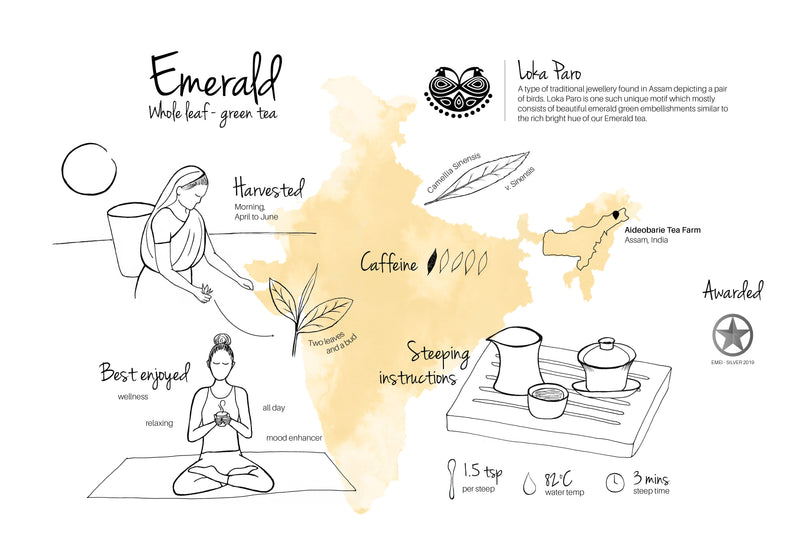 Emerald
Whole leaf - green tea
Loka Paro
A type of traditional jewellery found in Assam depicting a pair
of birds. Loka Paro is one such unique motif which mostly
consists of beautiful emerald green embellishments similar to
the rich bright hue of our Emerald tea.
Camellia Sinensis
v. Sinensis
Harvested
Morning,
April to June
Aideobarie Tea Farm
Assam, India
Caffeine
Two leaves
and a bud
Awarded
EMEI - SILVER 2019
Best enjoyed
wellness
relaxing
all day
mood enhancer
Steeping
instructions
1.5 tsp
per steep
82°C
water temp
3 mins
steep time